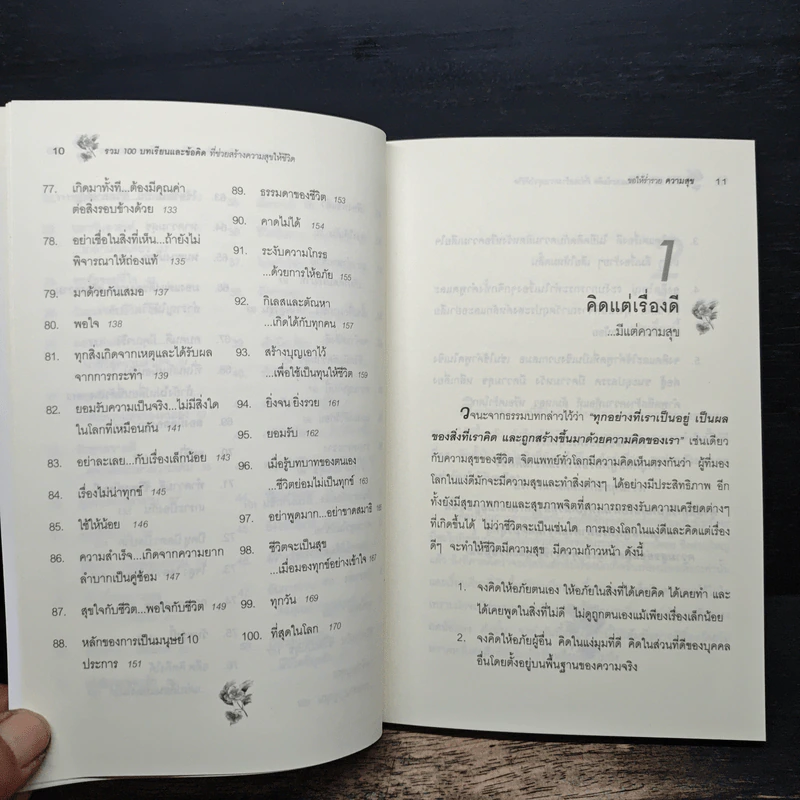 10 รวม 100 บทเรียนและข้อคิด ที่ช่วยสร้างความสุขให้ชีวิต
77. เกิดมาทั้งที...ต้องมีคุณค่า
ต่อสิ่งรอบข้างด้วย 133
78. อย่าเชื่อในสิ่งที่เห็น...ถ้ายังไม่
พิจารณาให้ถ่องแท้ 135
79. มาด้วยกันเสมอ 137
80. พอใจ 138
81. ทุกสิ่งเกิดจากเหตุและได้รับผล
จากการกระทำ 139
82. ยอมรับความเป็นจริง...ไม่มีสิ่งใด
ในโลกที่เหมือนกัน 141
83. อย่าละเลย...กับเรื่องเล็กน้อย 143
84. เรื่องไม่น่าทุกข์ 145
85. ใช้ให้น้อย 146
86. ความสำเร็จ...เกิดจากความยาก
ลำบากเป็นคู่ซ้อม 147
87. สุขใจกับชีวิต...พอใจกับชีวิต 149
88. หลักของการเป็นมนุษย์ 10
ประการ 151
89. ธรรมดาของชีวิต 153
90. คาดไม่ได้ 154
91. ระงับความโกรธ
...ด้วยการให้อภัย 155
92. กิเลสและตัณหา
...เกิดได้กับทุกคน 157
93. สร้างบุญเอาไว้
...เพื่อใช้เป็นทุนให้ชีวิต 159
94. ยิ่งจน ยิ่งรวย 161
95. ยอมรับ 162
96. เมื่อรู้บทบาทของตนเอง
...ชีวิตย่อมไม่เป็นทุกข์ 163
97. อย่าพูดมาก...อย่าขาดสมาธิ
98. ชีวิตจะเป็นสุข
...เมื่อมองทุกข์อย่างเข้าใจ 167
99. ทุกวัน 169
100. ที่สุดในโลก 170
ขอให้ร่ำรวย ความสุข 11
1
คิดแต่เรื่องดี
...มีแต่ความสุข
วจนะจากธรรมบทกล่าวไว้ว่า "ทุกอย่างที่เราเป็นอยู่ เป็นผล
ของสิ่งที่เราคิด และถูกสร้างขึ้นมาด้วยความคิดของเรา" เช่นเดียว
กับความสุขของชีวิต จิตแพทย์ทั่วโลกมีความคิดเห็นตรงกันว่า ผู้ที่มอง
โลกในแง่ดีมักจะมีความสุขและทำสิ่งต่างๆ ได้อย่างมีประสิทธิภาพ อีก
ทั้งยังมีสุขภาพกายและสุขภาพจิตที่สามารถรองรับความเครียดต่างๆ
ที่เกิดขึ้นได้ ไม่ว่าชีวิตจะเป็นเช่นใด การมองโลกในแง่ดีและคิดแต่เรื่อง
ดีๆ จะทำให้ชีวิตมีความสุข มีความก้าวหน้า ดังนี้
1. จงคิดให้อภัยตนเอง ให้อภัยในสิ่งที่ได้เคยคิด ได้เคยทำ และ
ได้เคยพูดในสิ่งที่ไม่ดี ไม่ดูถูกตนเองแม้เพียงเรื่องเล็กน้อย
2. จงคิดให้อภัยผู้อื่น คิดในแง่มุมที่ดี คิดในส่วนที่ดีของบุคคล
อื่นโดยตั้งอยู่บนพื้นฐานของความจริง